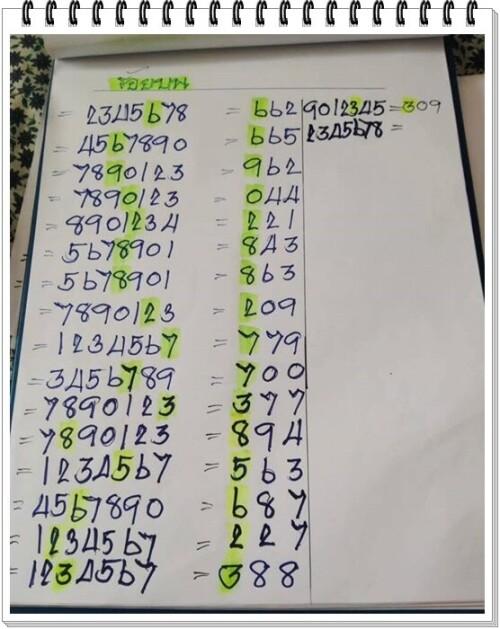 ร้อยบน
= 2345678 = 662
= 4567890 = 665
= 7890123 = 962
= 7890123 = 044
= 8901234 = 221
= 5678901 = 843
= 5678901 = 863
= 7890123 = 209
= 1234567 = 779
= 3456789 = 700
= 7890123 = 377
= 7890123 = 894
= 1234567 = 563
= 4567890 = 687
= 1234567 = 227
= 1234567 = 388
9012345 = 309
2345678 =